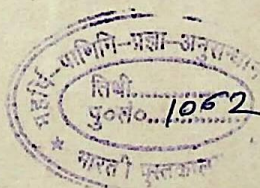 महर्षि-पाणिनि-प्रज्ञा-अनुसन्धान
तिथी..............
पु०सं०..1062
* भारती पुस्तकालय